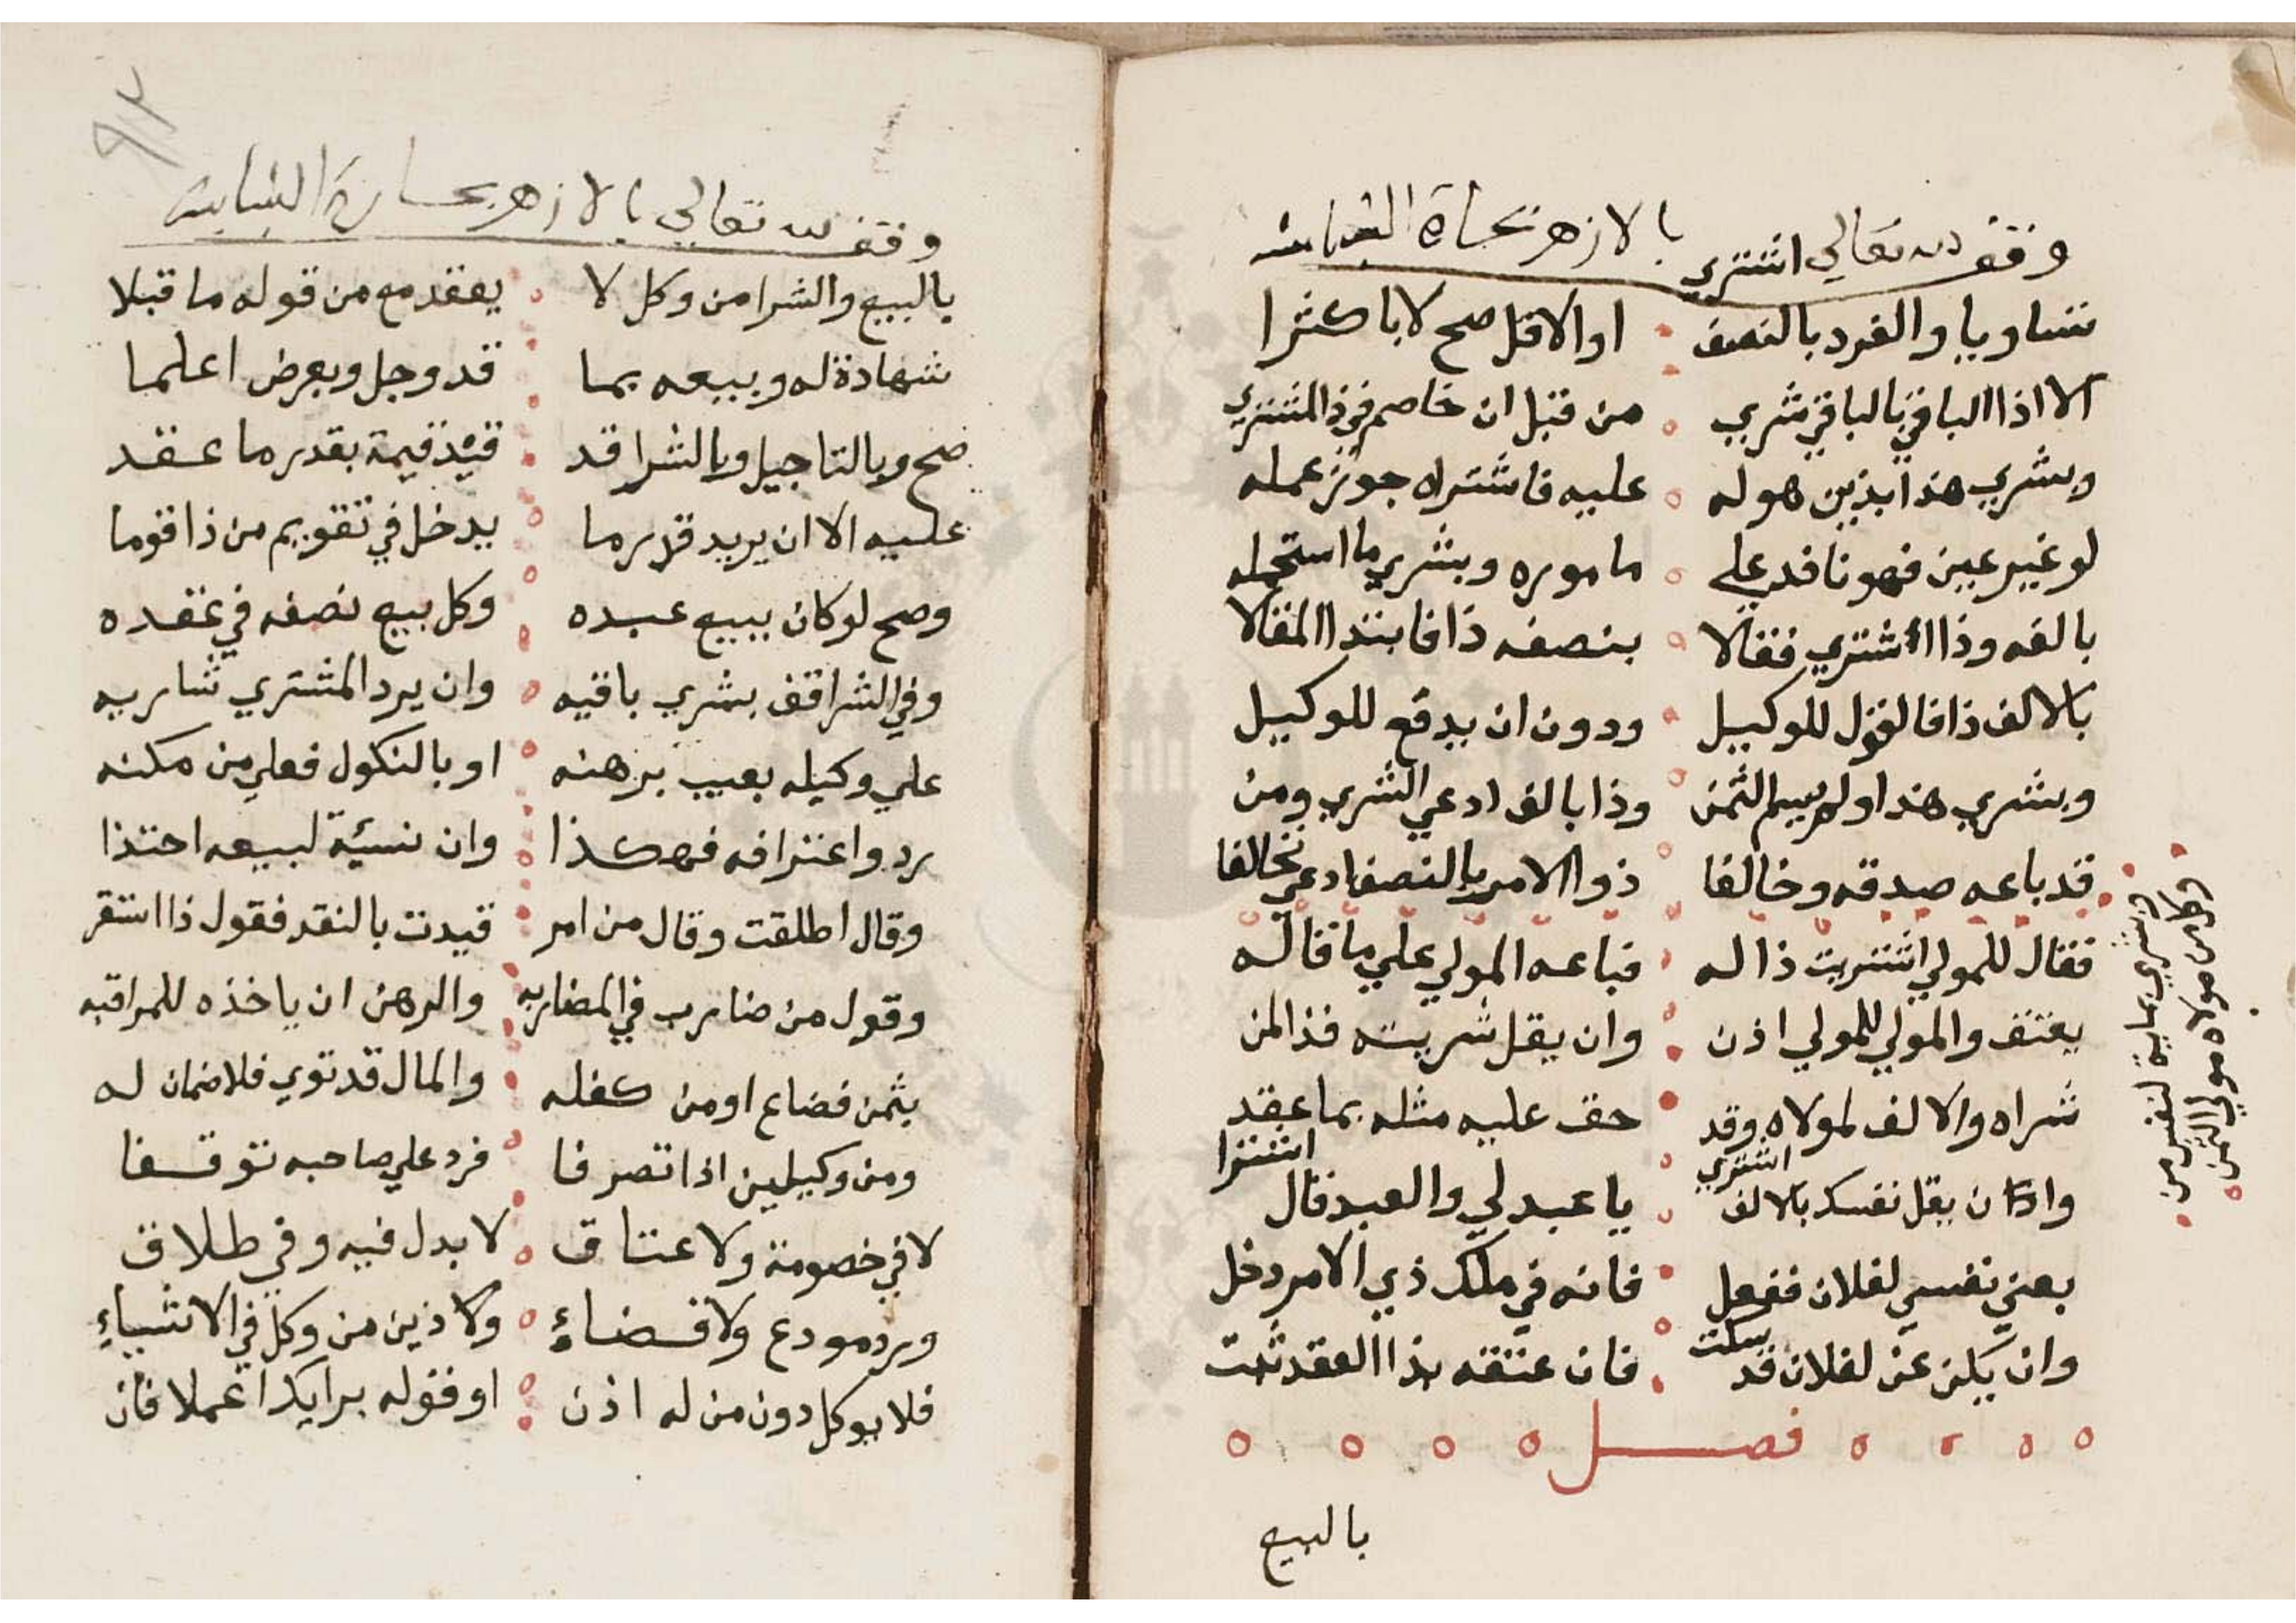 وقف لله تعالي بالازهر بحارة
اشتري
تساويا والفرد بالنصف اوالاقل صح لاباكثرا
الا اذا الباقي بالباقي شري من قبل ان خاصم في ذا المشتري
وبشري هذا بذين هو له عليه فاشتراه جوزعمله
لو غير عين فهو نافد علي ماموره وبشري ما استحمله
بالفه وذا اشتري فقالا بنصفه ذا فابتدا المقالا
بالالف ذا فالقول للوكيل ودون ان يدفع للوكيل
وبشري هذا ولم يسم الثمن وذا بالف ادعي الشري ومن
قد باعه صدقه وخالفا ذوا الامر بالنصف ادعي تحالفا
فقال للمولي اشتريت ذا له فباعه المولي علي ما قاله
يعتق والمولي للمولي اذن وان يقل شريته فذا لمن
شراه والالف لمولاه وقد حق عليه مثله بما عقد
اشتري اشترا
وان يقل نفسك بالالف يا عبد لي والعبد قال
بعني نفسي لفلان ففعل فانه في ملك ذي الامر دخل
سكت
وان يكن عن لفلان قد فان عتقه بذا العقد ثبت
فصل
بالبيع
وكل من مولاه مولي الثمن
وشري بماية لنفس من
٩٢
وقف لله تعالي بالازهر بحارة
بالبيع والشرا من وكل لا يعقد مع من قوله ما قبلا
شهادة له وبيعه بما قد وجل وبعرض اعلما
صح وبالتاجيل وبالشرا قد قيد قيمة بقدر ما عقد
عليه الا ان يريد قدر ما يدخل في تقويم من ذا قوما
وصح لوكان ببيع عبده وكل بيع نصفه في عقده
وفي الشرا قف بشري باقيه وان يرد المشتري شاريه
علي وكيله بعيب برهنه او بالنكول فعلي من مكنه
يرد واعترافه فهكذا وان نسئية لبيعه احتذا
وقال اطلقت وقال من امر قيدت بالنقد فقول ذا استقر
وقول من ضارب في المضاربه والرهن ان ياخذه للمراقبه
بثمن فضاع اومن كفله والمال قد توي فلا ضمان له
ومن وكيلين اذا تصرفا فرد علي صاحبه توقفا
لا في خصومة ولا عتاق لا بدل فيه وفي طلاق
ورد مودع ولا قضاء ولا ذين من وكل في الاشياء
فلا يوكل دون من له اذن او قوله برايك اعملا فان